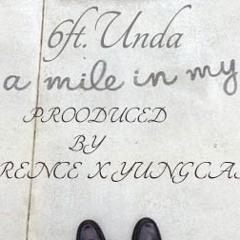 6ft. Unda
a mile in my
PROODUCED
BY
RENCE X YUNGCA